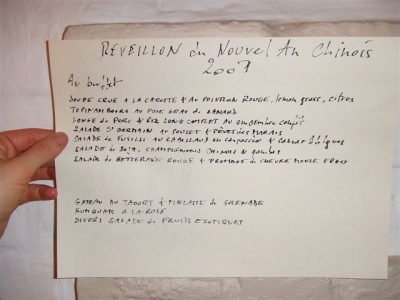 REVEILLON du NOUVEL AN Chinois
2009
Au buffet
SOUPE CRUE A LA CAROTTE & AU POIVRON ROUGE, lemon grass, citrus
TOPINAMBOURS AU FOIE GRAS de CANARD
LONGE de PORC & RIZ LONG COMPLET AU gingembre confit
SALADE St GERMAIN AU POULET & FEVES des MARAIS
SALADE de FUSILLI AU en & d'algues
SALADE de SOJA, CHAMPIGNONS CHINOIS &
SALADE de BETTERAVE ROUGE & FROMAGE de CHEVRE MOULE FRAIS
GATEAU AU YAOURT & MELASSE de GRENADE
KUMQUATS A LA ROSE
DIVERS SALADE de FRUITS EXOTIQUES